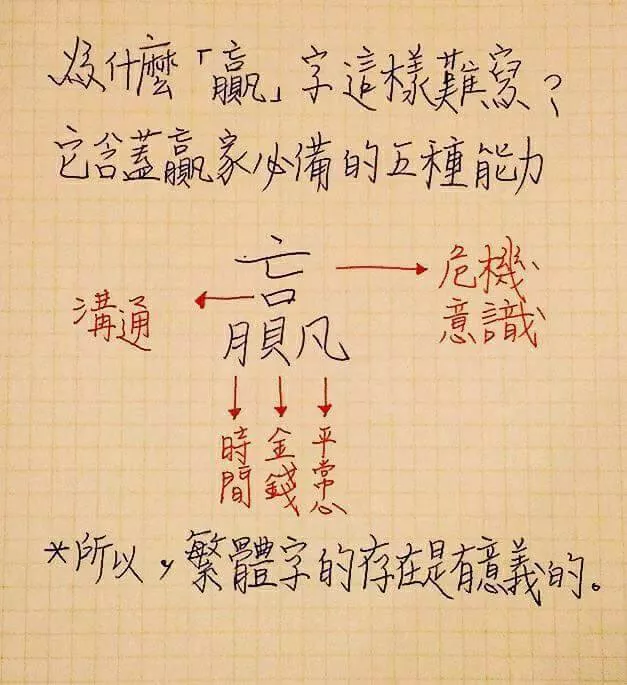 為什麼「贏」字這樣難寫？
它含蓋贏家必備的五種能力
贏
溝通
危機
意識
時間
金錢
平常心
*所以，繁體字的存在是有意義的。